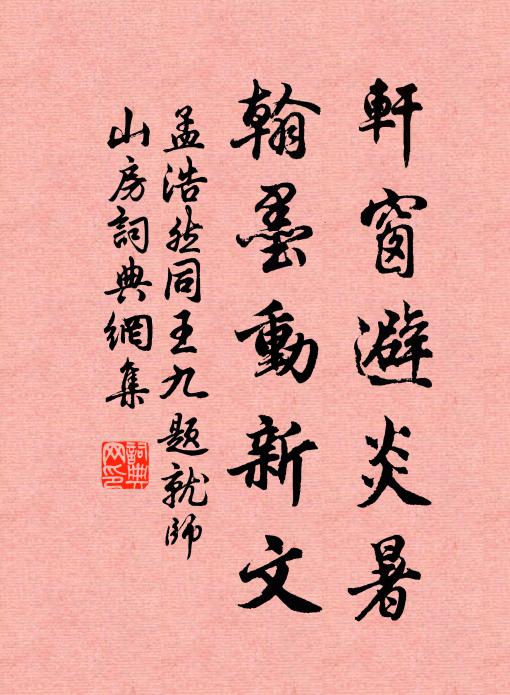 軒窗避炎暑
翰墨動新文
孟浩然同王九題就師
山房詞典網集
詞典
网印